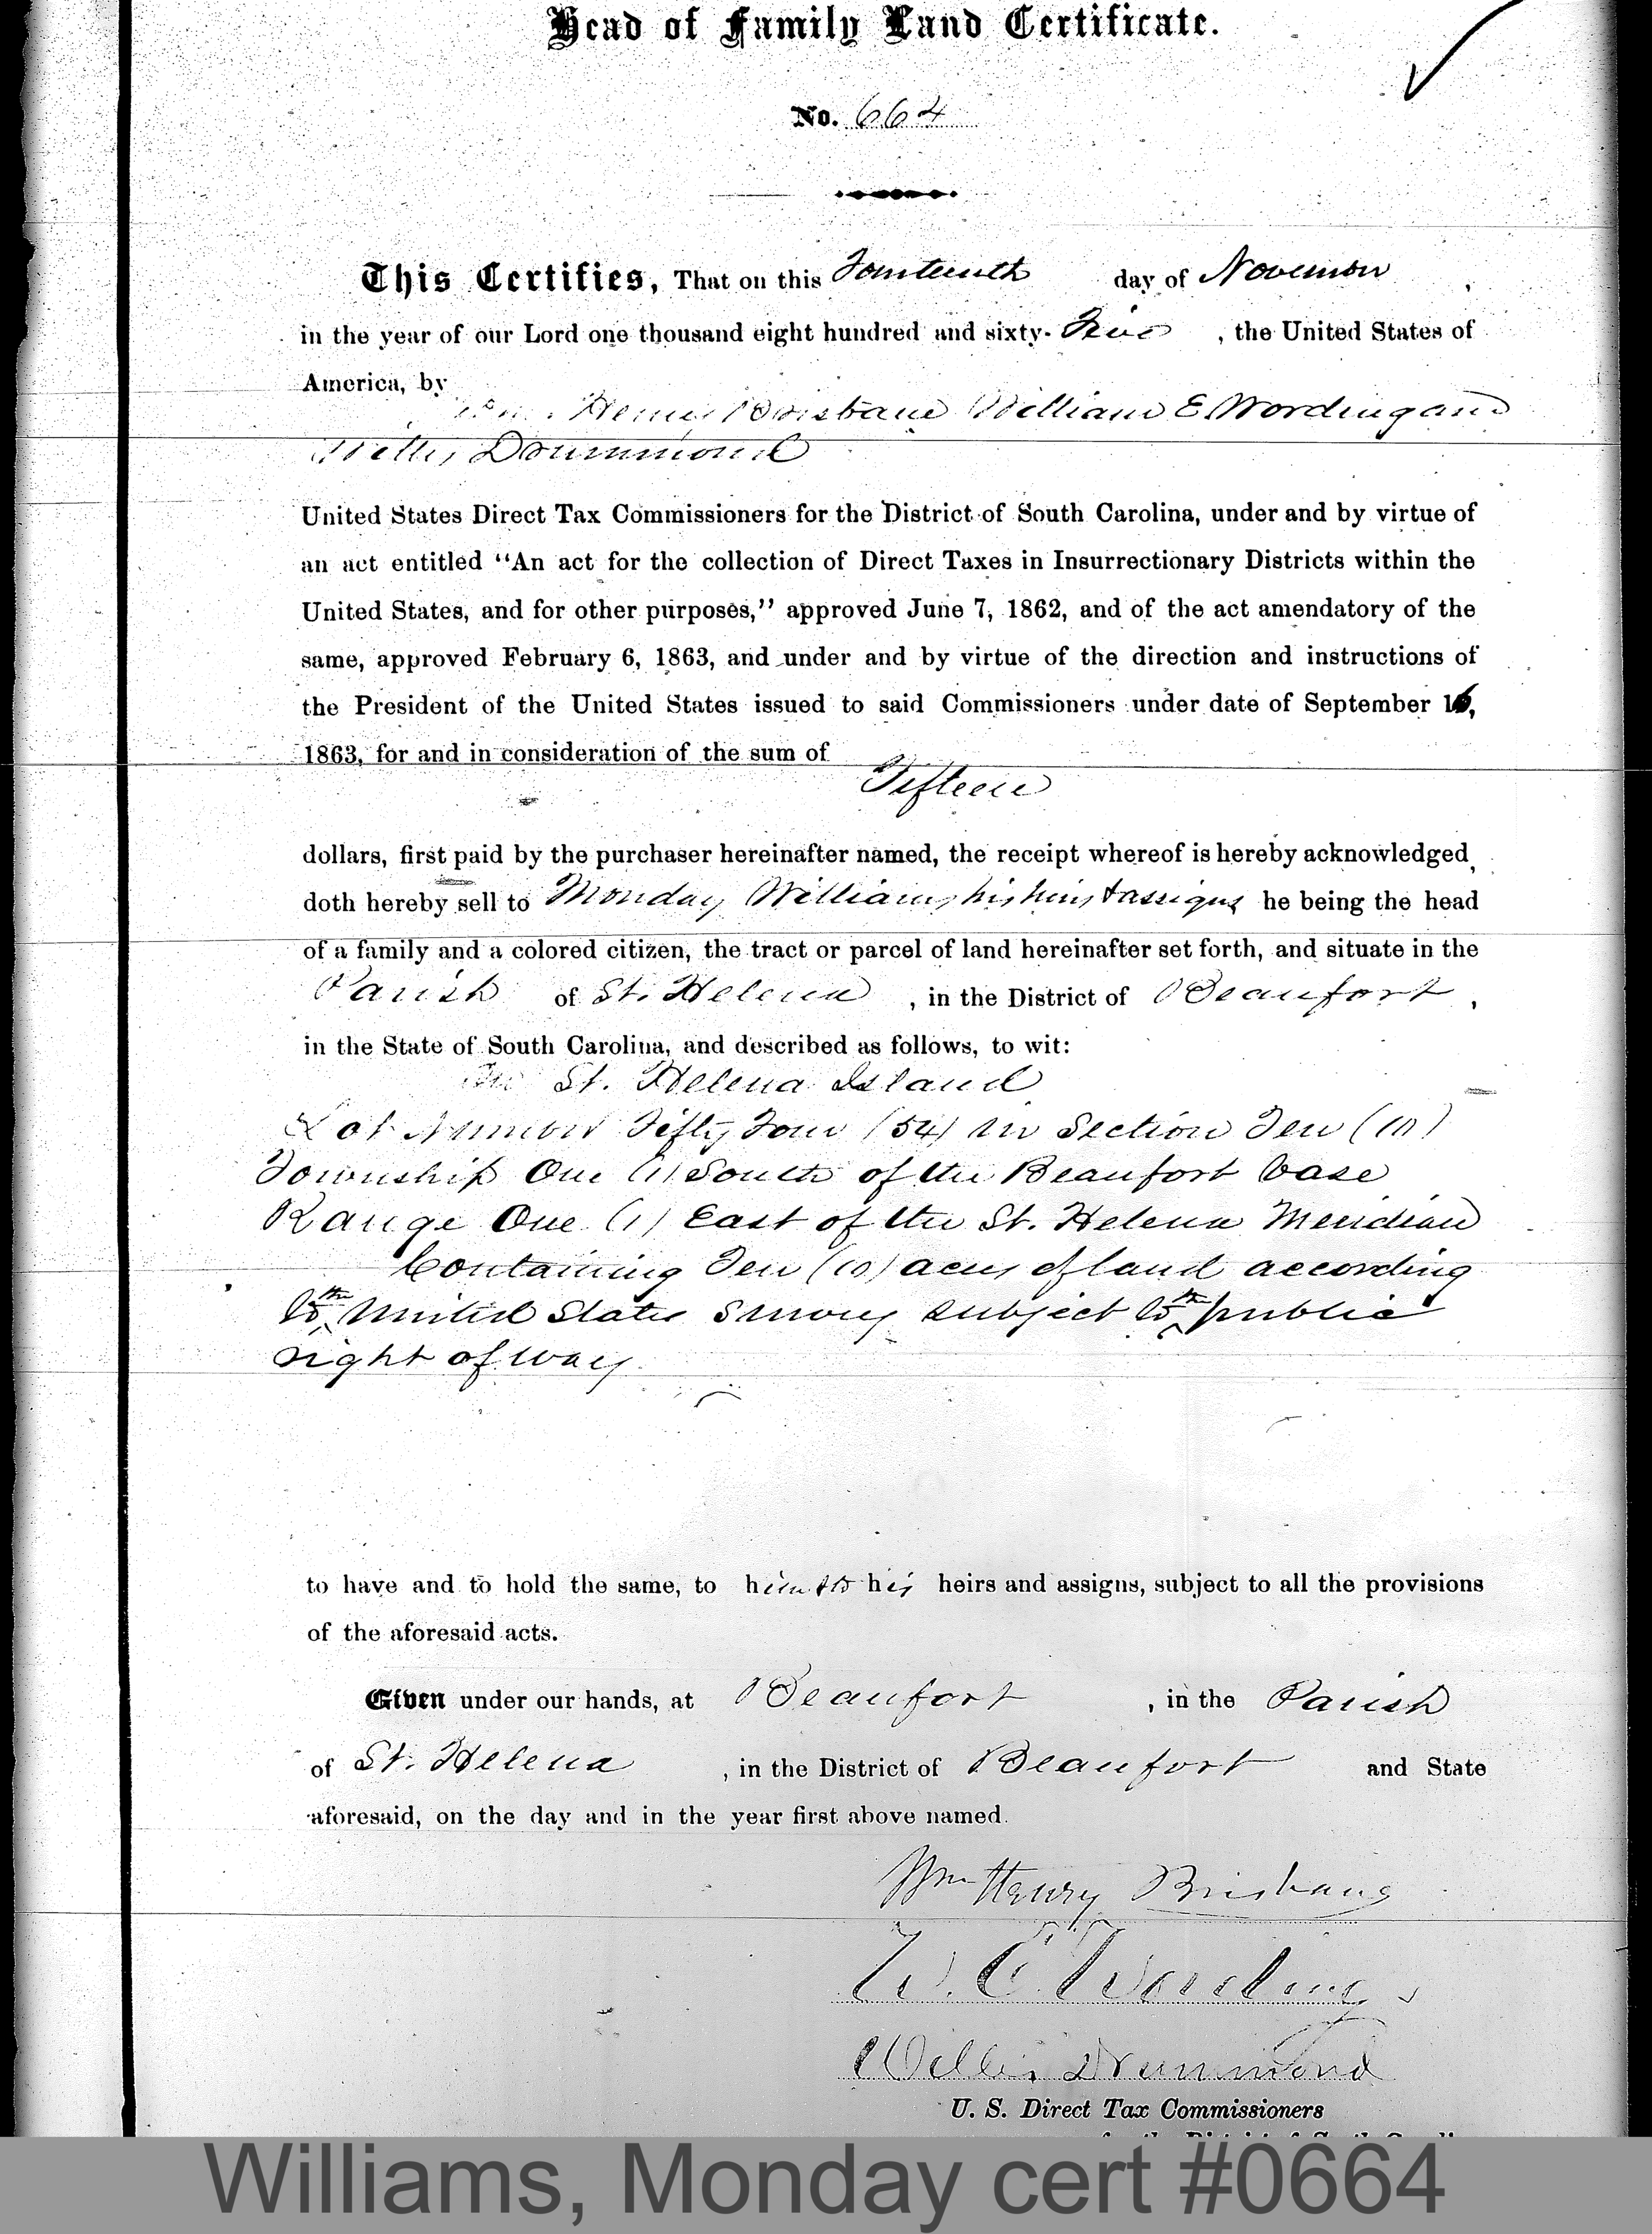 Head of Family Land Certificate.
No. 664
This Certifies, That on this Fourteenth day of November,
in the year of our Lord one thousand eight hundred and sixty-Five, the United States of
America, by
Wm. Henry Brisbane William E Wording and
Willis Drummond
United States Direct Tax Commissioners for the District of South Carolina, under and by virtue of
an act entitled "An act for the collection of Direct Taxes in Insurrectionary Districts within the
United States, and for other purposes," approved June 7, 1862, and of the act amendatory of the
same, approved February 6, 1863, and under and by virtue of the direction and instructions of
the President of the United States issued to said Commissioners under date of September 16,
1863, for and in consideration of the sum of
Fifteen
dollars, first paid by the purchaser hereinafter named, the receipt whereof is hereby acknowledged,
doth hereby sell to Monday Williams, his heirs & assigns he being the head
of a family and a colored citizen, the tract or parcel of land hereinafter set forth, and situate in the
Parish of St. Helena, in the District of Beaufort,
in the State of South Carolina, and described as follows, to wit:
On St. Helena Island
Lot Number Fifty Four (54) in Section Ten (10)
Township One (1) South of the Beaufort base
Range One (1) East of the St. Helena Meridian
Containing Ten (10) acres of land according
to the United States Survey subject to the public
right of way.
to have and to hold the same, to him & to his heirs and assigns, subject to all the provisions
of the aforesaid acts.
Given under our hands, at Beaufort, in the Parish
of St. Helena, in the District of Beaufort and State
aforesaid, on the day and in the year first above named.
Wm Henry Brisbane
W. E. Wording
Willis Drummond
U. S. Direct Tax Commissioners
for the District of South Carolina
Williams, Monday cert #0664